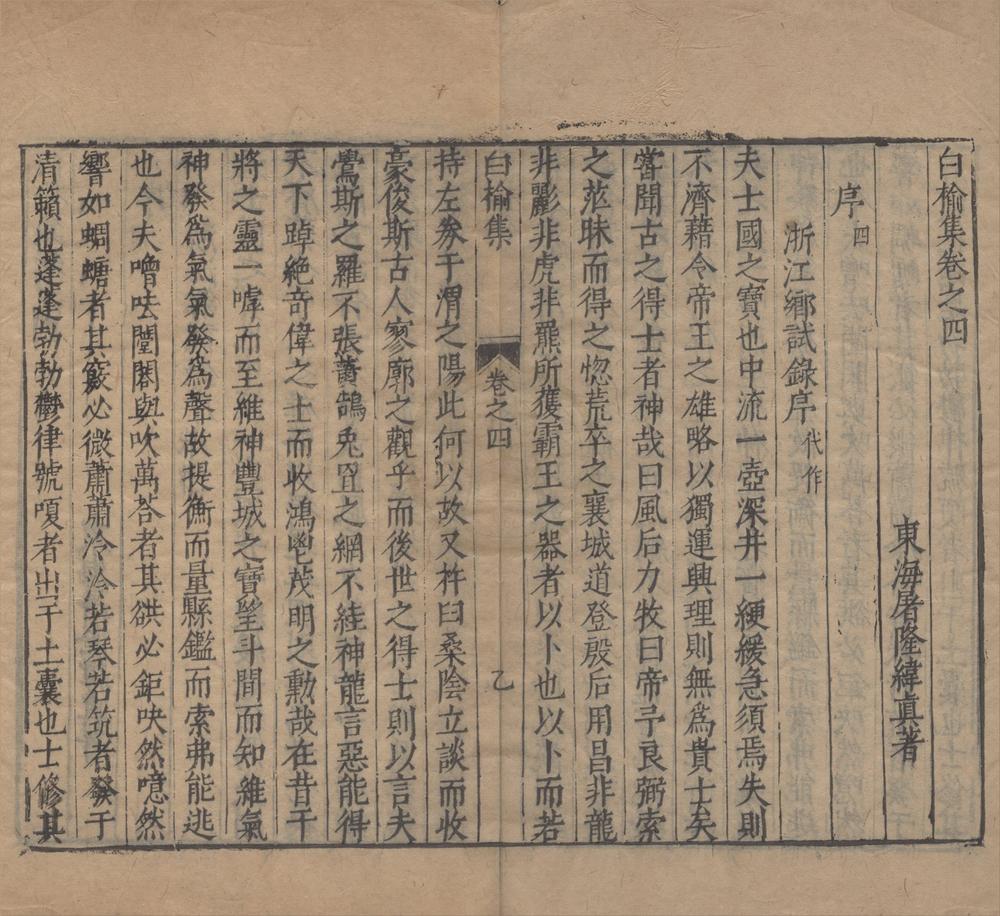 白榆集卷之四
東海屠隆緯真著
序四
浙江鄉試錄序 代作
夫士國之寶也中流一壺深井一綆緩急須焉失則
不濟藉令帝王之雄略以獨運興理則無為貴士矣
嘗聞古之得士者神哉曰風后力牧曰帝予良弼索
之茫昧而得之惚荒卒之襄城道登殷后用昌非龍
非彲非虎非羆所獲霸王之器者以卜也以卜而若
白榆集 卷之四 乙
持左券于渭之陽此何以故又杵臼桑陰立談而收
豪俊斯古人寥廓之觀乎而後世之得士則以言夫
鸒斯之羅不張黃鵠兔罝之網不絓神龍言惡能得
天下踔絶奇偉之士而收鴻鬯茂明之勳哉在昔干
將之靈一嘑而至維神豐城之寶望斗間而知維氣
神發爲氣氣發爲聲故提衡而量縣鑑而索弗能逃
也今夫噌吰闛閤與吹萬荅者其谼必鉅吷然噫然
響如蜩螗者其竅必微蕭蕭泠泠若琴若筑者發于
清籟也蓬蓬勃勃鬱律號嗄者出于土囊也士修其